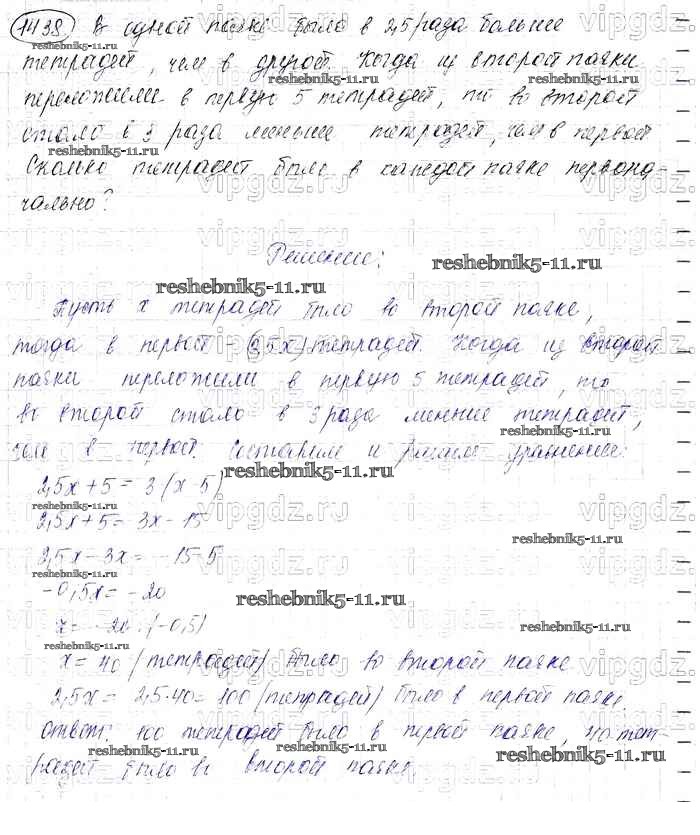 1438 В одной пачке было в 2,5 раза больше
тетрадей, чем в другой. Когда из второй пачки
переложили в первую 5 тетрадей, то во второй
стало в 3 раза меньше тетрадей, чем в первой
Сколько тетрадей было в каждой пачке первона-
чально?
Решение:
Пусть x тетрадей было во второй пачке,
тогда в первой - (2,5x) тетрадей. Когда из второй
пачки переложили в первую 5 тетрадей, то
во второй стало в 3 раза меньше тетрадей,
чем в первой. Составим и решим уравнение:
2,5x + 5 = 3 (x - 5)
2,5x + 5 = 3x - 15
2,5x - 3x = -15 - 5
-0,5x = -20
x = -20 : (-0,5)
x = 40 (тетрадей) было во второй пачке
2,5x = 2,5·40 = 100 (тетрадей) было в первой пачке.
Ответ: 100 тетрадей было в первой пачке, 40 тет-
радей было во второй пачке.
reshebnik5-11.ru
vipgdz.ru